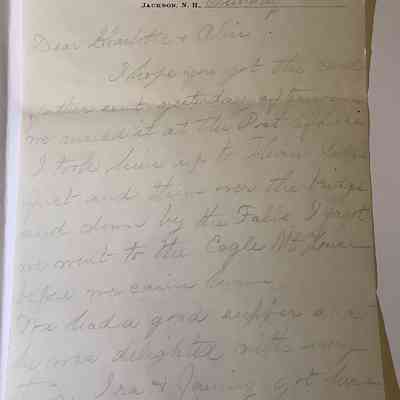 JACKSON, N. H., Sunday
Dear Charlotte & Alice:
I hope you got the card
father sent yesterday afternoon
we mailed it at the Post Office
I took him up to Thorn
first and then over the bridge
and down by the Falls I
we went to the Eagle Mt House
before we came home
We had a good supper
he was delighted with
Ira & got here